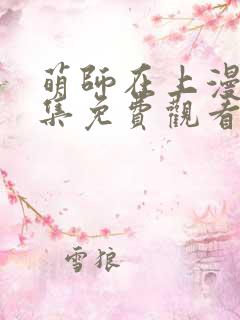 萌師在上漫
集免費觀看
雪狼